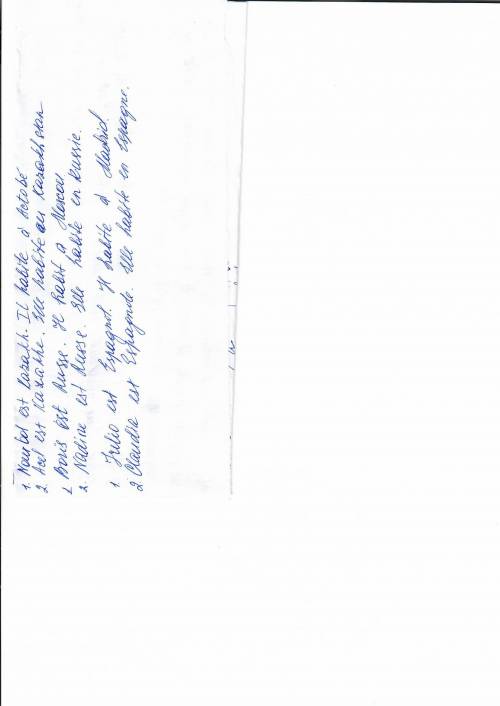 1. Nourbol est kazakh. Il habite à Actobé
2. Asel est kazakhe. Elle habite au Kazakhstan
1. Boris est Russe. Il habit à Moscou
2. Nadine est Russe. Elle habite en Russie.
1. Julio est Espagnol. Il habite à Madrid.
2. Claudia est Espagnole. Elle habite en Espagne.